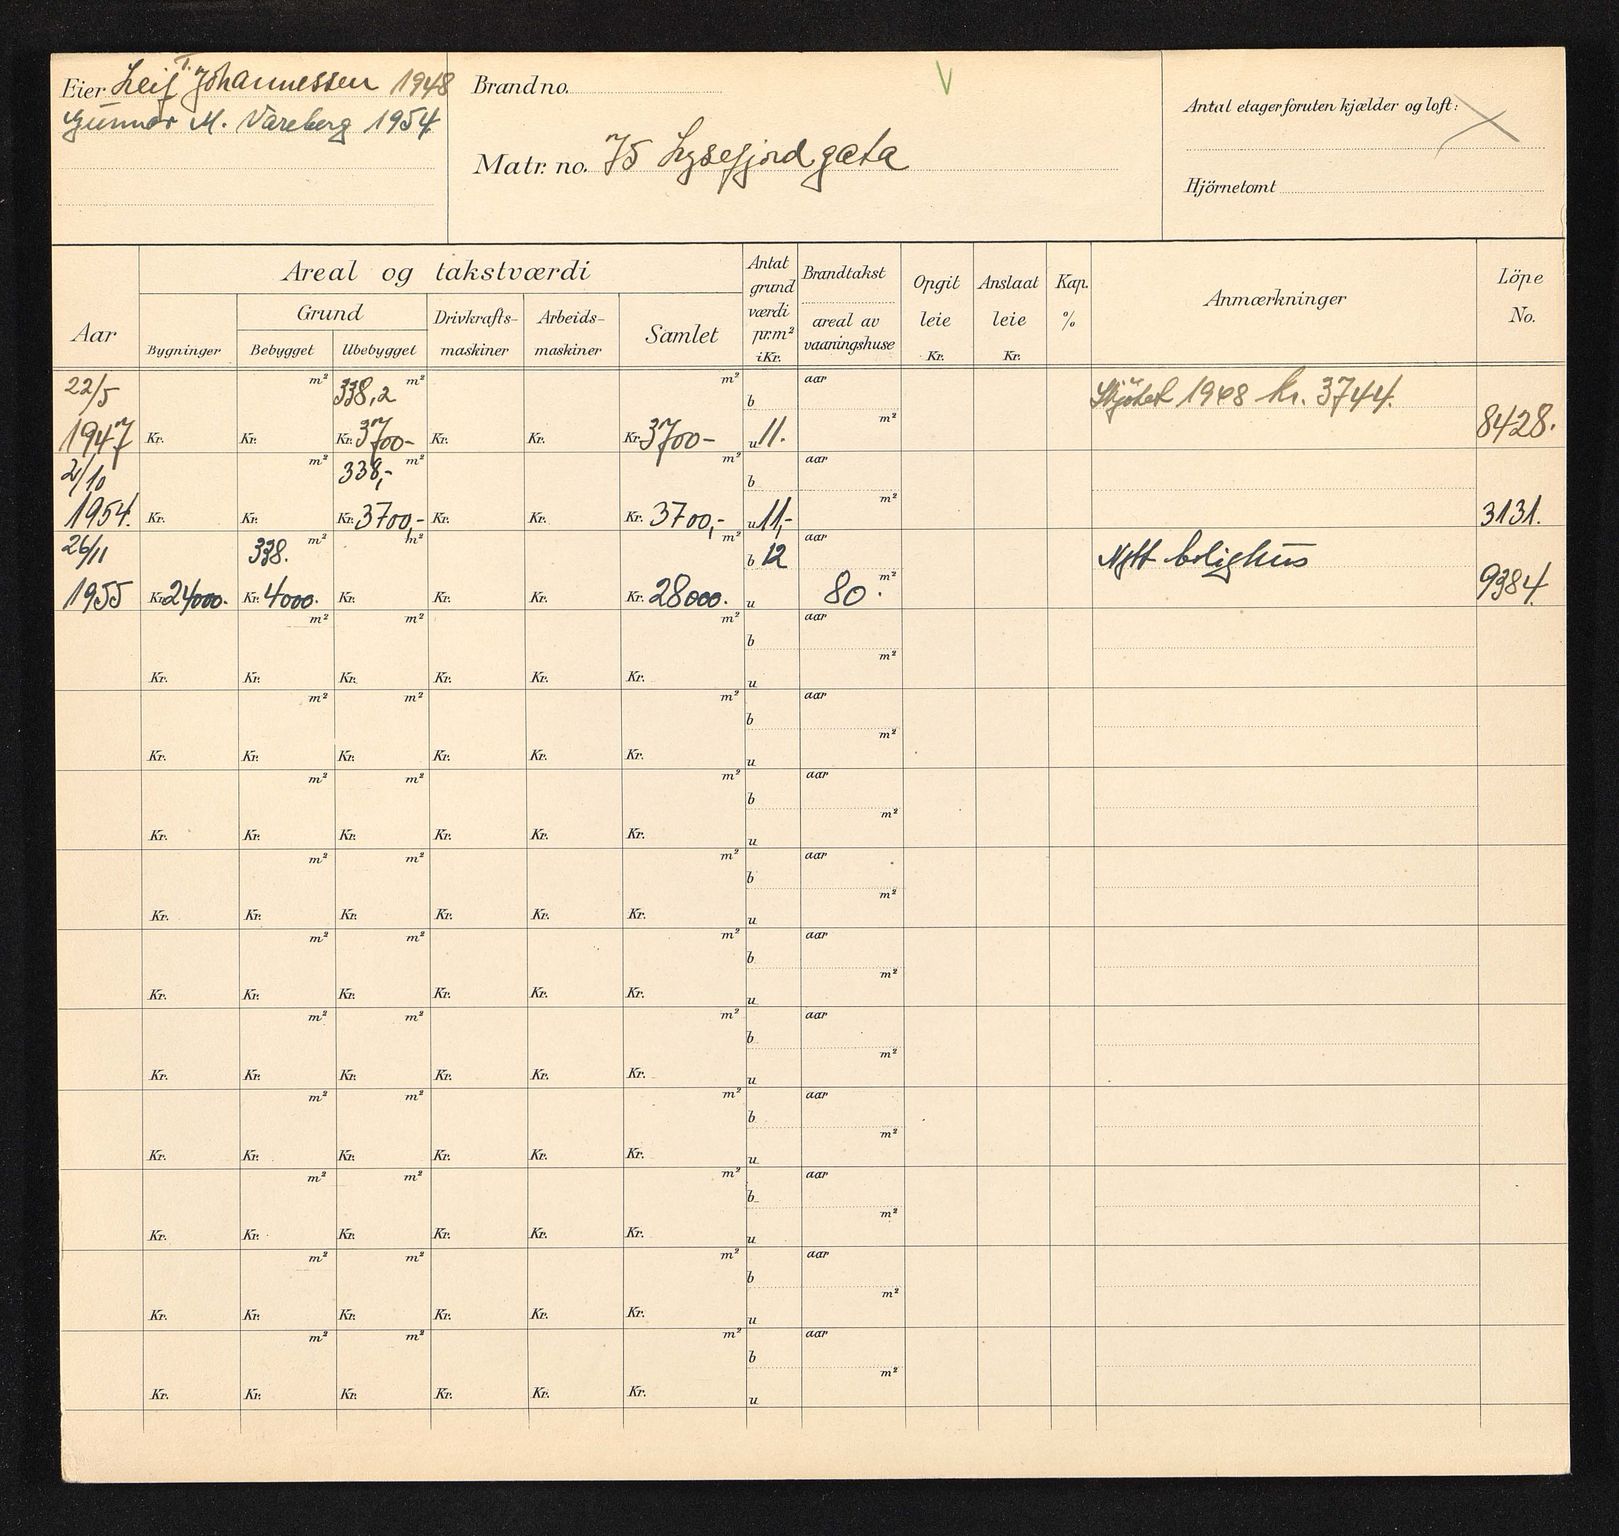 Eier Leif T. Johannessen 1948
Gunnar M. Våreberg 1954
Brand no.
Matr. no. 75 Lysefjordgata
Antal etager foruten kjælder og loft:
Hjörnetomt
Areal og takstværdi
Aar
Grund
Bygninger
Bebygget
Ubebygget
Drivkrafts-
maskiner
Arbeids-
maskiner
Samlet
Antat
grund
værdi
pr.m²
i Kr.
Brandtakst
areal av
vaaningshuse
Opgit
leie
Kr.
Anslaat
leie
Kr.
Kap.
%
Anmærkninger
Löpe
No.
22/5 m² 338,2 m² m² b aar Skjøtet 1948 kr. 3744.
1947 Kr. Kr. Kr. 3700- Kr. Kr. Kr. 3700- u 11.- m² 8428.
2/10 m² 338,- m² m² b aar
1954. Kr. Kr. Kr. 3700,- Kr. Kr. Kr. 3700,- u 11,- m² 3131.
26/11 338. m² m² m² b 12 aar Nytt bolighus
1955 Kr. 24000.- Kr. 4000.- Kr. Kr. Kr. Kr. 28000.- u 80. m² 9384.
m² m² m² b aar
Kr. Kr. Kr. Kr. Kr. Kr. u m²
m² m² m² b aar
Kr. Kr. Kr. Kr. Kr. Kr. u m²
m² m² m² b aar
Kr. Kr. Kr. Kr. Kr. Kr. u m²
m² m² m² b aar
Kr. Kr. Kr. Kr. Kr. Kr. u m²
m² m² m² b aar
Kr. Kr. Kr. Kr. Kr. Kr. u m²
m² m² m² b aar
Kr. Kr. Kr. Kr. Kr. Kr. u m²
m² m² m² b aar
Kr. Kr. Kr. Kr. Kr. Kr. u m²
m² m² m² b aar
Kr. Kr. Kr. Kr. Kr. Kr. u m²
m² m² m² b aar
Kr. Kr. Kr. Kr. Kr. Kr. u m²
m² m² m² b aar
Kr. Kr. Kr. Kr. Kr. Kr. u m²